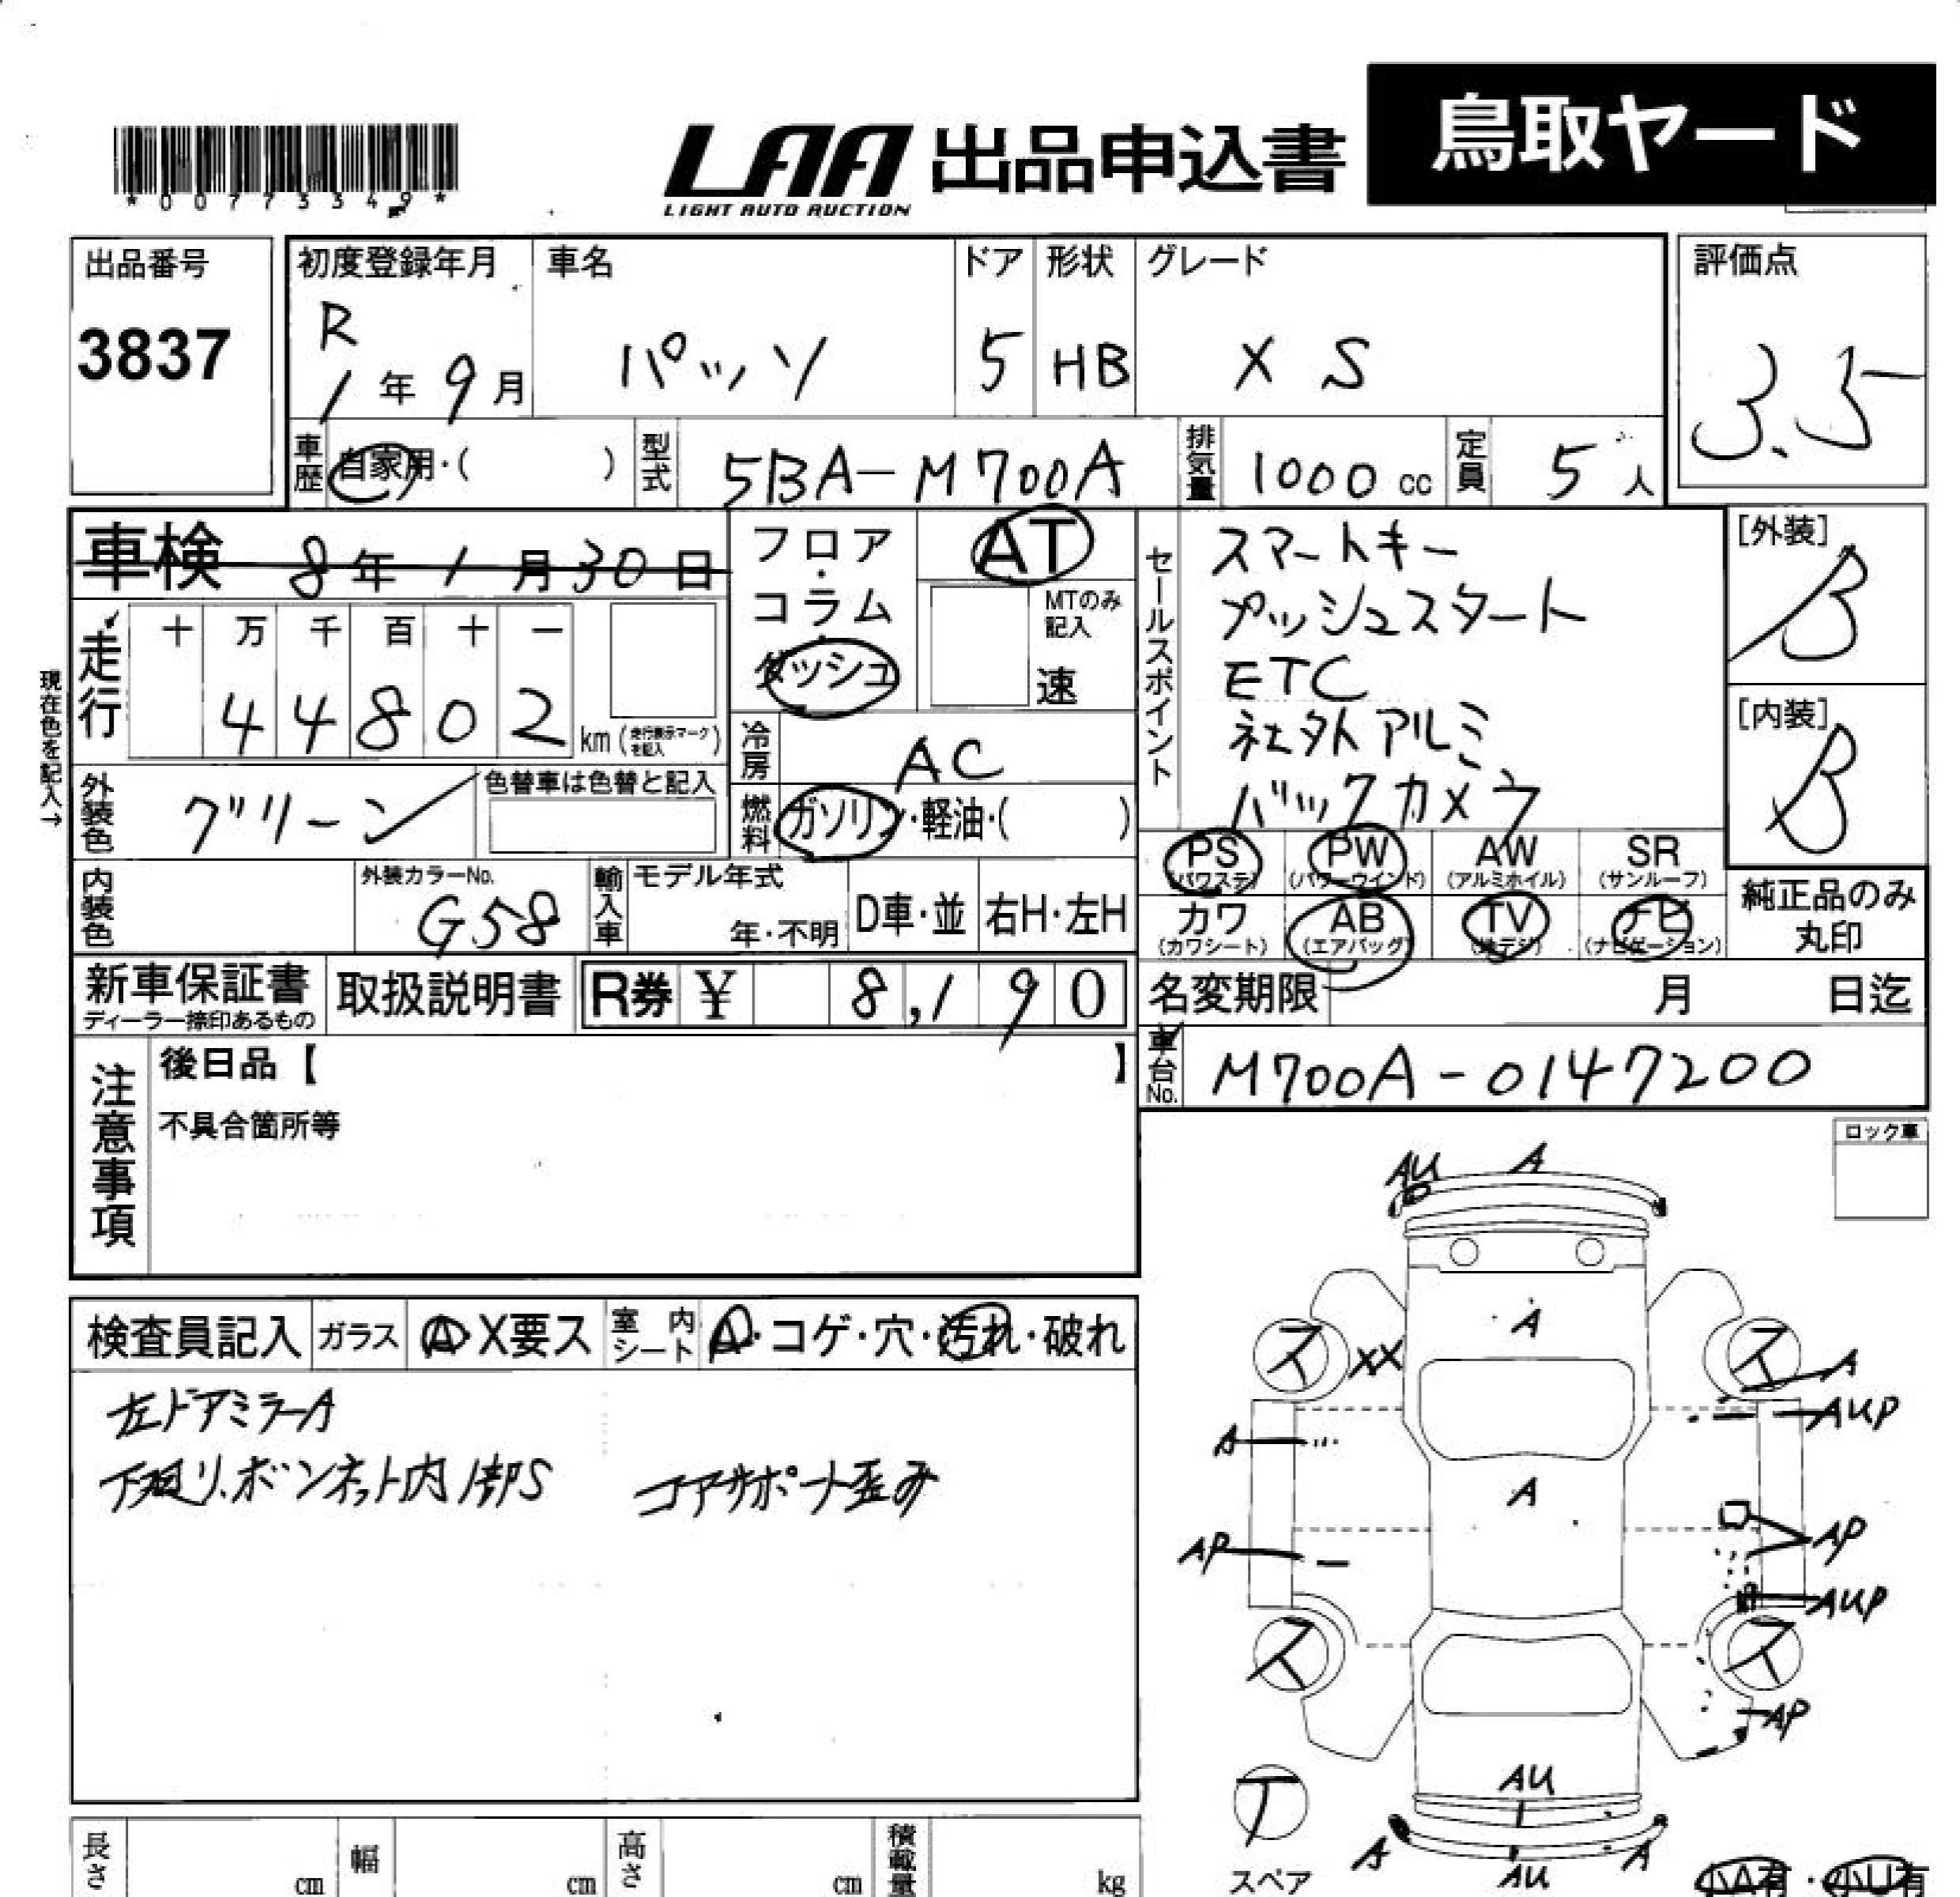 *00773349*
LAA 出品申込書 鳥取ヤード
LIGHT AUTO AUCTION
出品番号 初度登録年月 車名 ドア 形状 グレード 評価点
3837 R 1年 9月 パッソ 5 HB X S 3.5
車歴 自家用・( ) 型式 5BA-M700A 排気量 1000 cc 定員 5 人
車検 8年 1月 30日 フロア・コラム・ダッシュ AT MTのみ記入 速
セールスポイント
スマートキー
プッシュスタート
ETC
社外アルミ
バックカメラ
[外装] B
[内装] B
走行 十 万 千 百 十 一
44802 km (走行表示マークを記入)
現在色を記入→
冷房 AC
外装色 グリーン 色替車は色替と記入 燃料 ガソリン・軽油・( )
PS AW PW SR
(パワステ) (パワーウインド) (アルミホイル) (サンルーフ)
カワ AB TV ナビ
(カワシート) (エアバッグ) (地デジ) (ナビゲーション)
純正品のみ
丸印
内装色 外装カラーNo. G58 輸入車 モデル年式 年・不明 D車・並 右H・左H
新車保証書 取扱説明書 R券 ¥ 8,190 名変期限 月 日迄
ディーラー捺印あるもの
車台No. M700A-0147200
注意事項
後日品【 】
不具合箇所等
ロック車
検査員記入 ガラス A・X要ス 室内シート A・コゲ・穴・汚れ・破れ
左ドアミラーA
下廻り、ボンネット内部S コアサポート歪み
AU A
A
ス XX ス A
A AUP
A
AP AP
AUP
ス ス
AP
AU
T
A AU A
スペア 小A有・小U有
長さ cm 幅 cm 高さ cm 積載量 kg